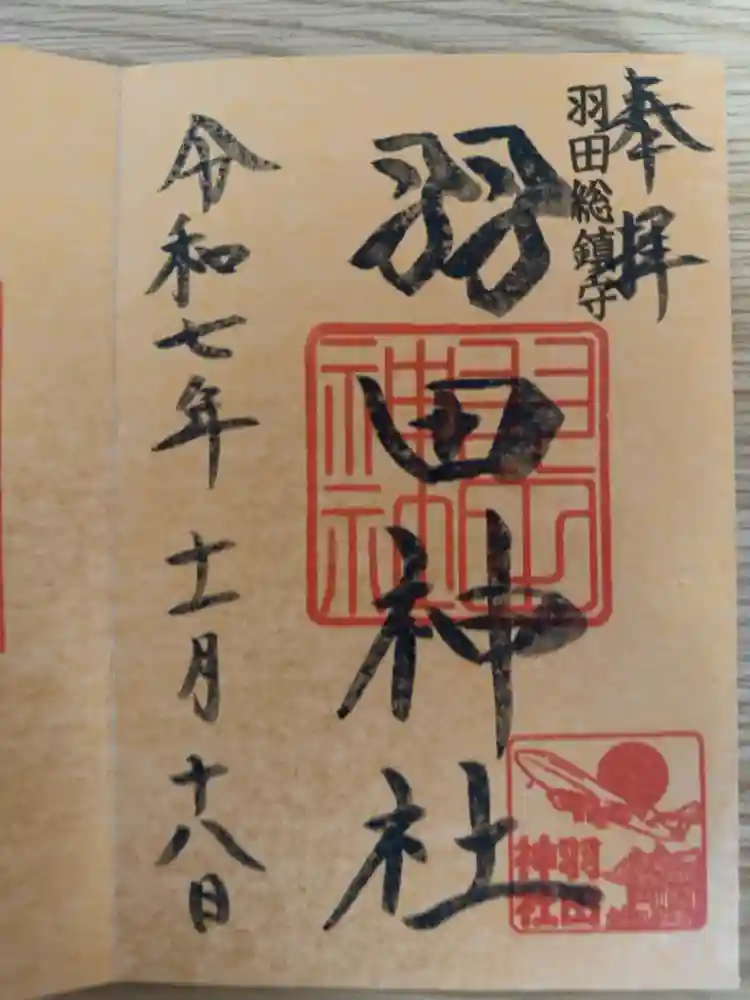 奉拝
羽田総鎮守
羽田神社
羽田神社
羽田神社
令和七年十一月十八日